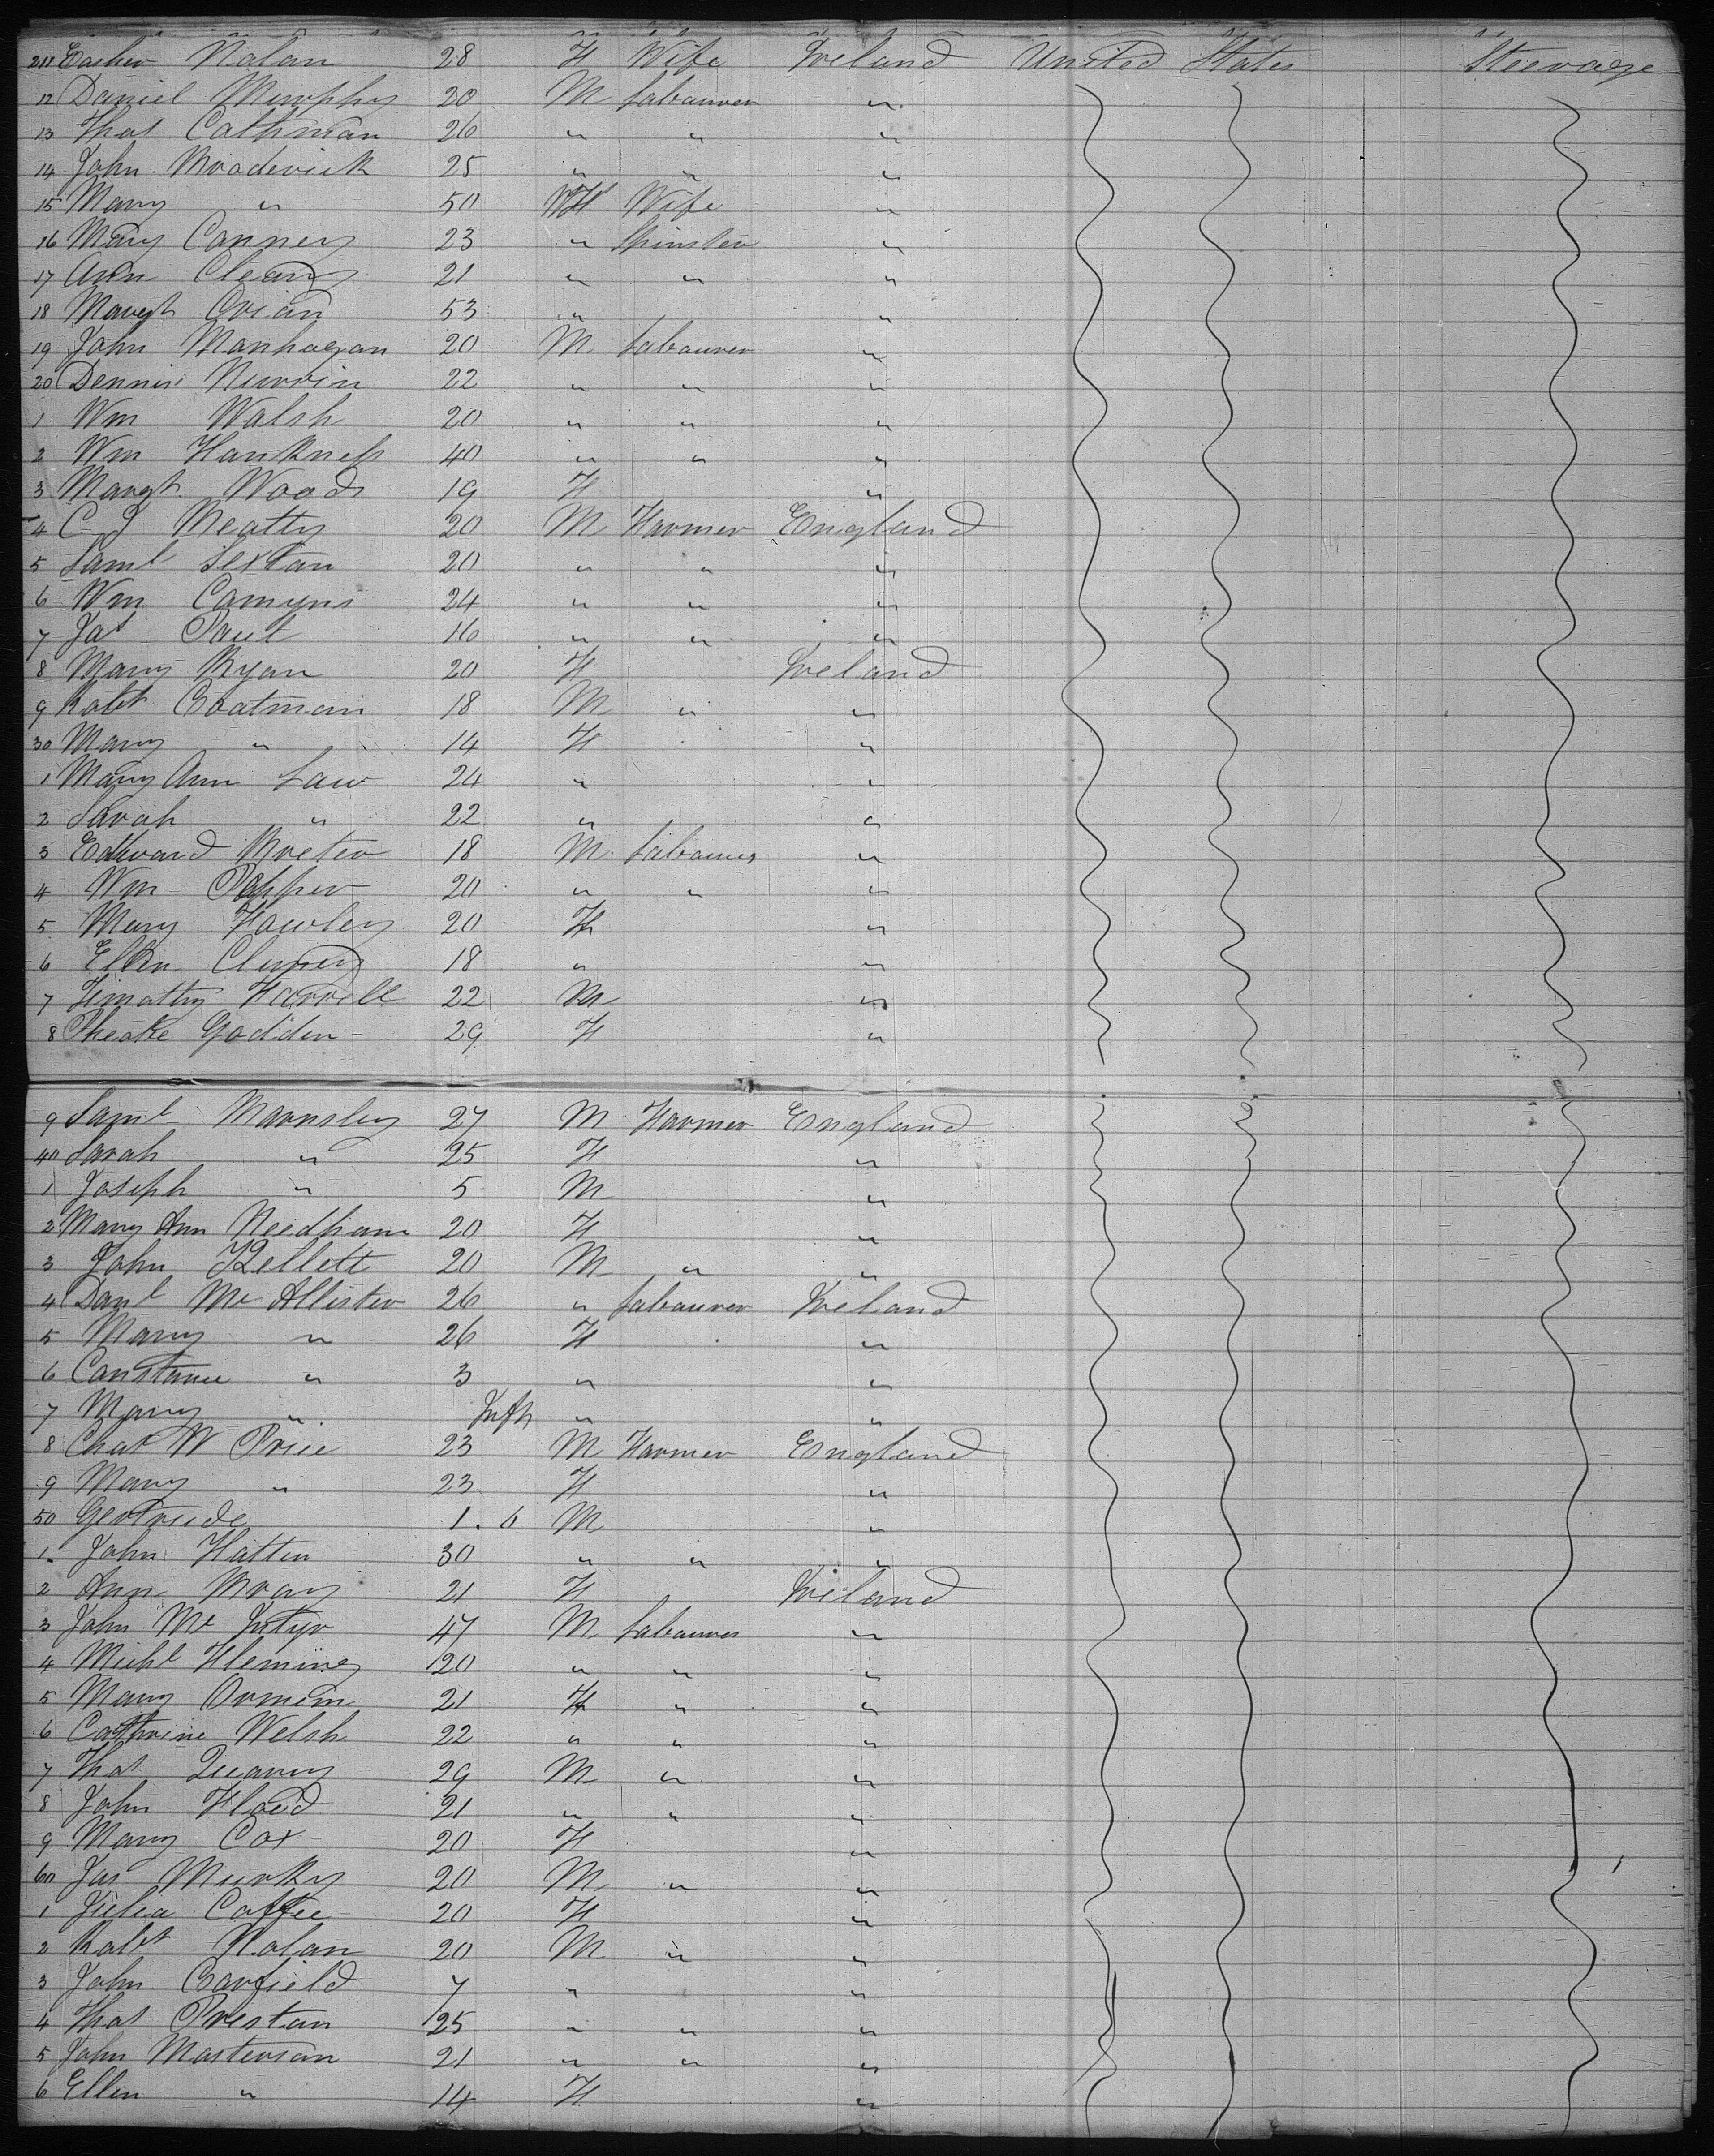 211 Esther Nolan 28 F Wife Ireland United States Steerage
12 Daniel Murphy 20 M Labourer "
13 Thos Cathman 26 " " "
14 John Broderick 25 " " "
15 Mary " 50 F Wife "
16 Mary Connery 23 " Spinster "
17 Ann Cleary 21 " " "
18 Margt 53 " "
19 John Manhagan 20 M Labourer "
20 Dennis 22 " " "
1 Wm Walsh 20 " " "
2 Wm Harkness 40 " " "
3 Margt Woods 19 F "
4 C J Beatty 20 M Farmer England
5 Saml Sexton 20 " " "
6 Wm Comyns 24 " " "
7 Jas Paul 16 " " "
8 Mary Ryan 20 F Ireland
9 Robt Boatman 18 M " "
30 Mary " 14 F "
1 Mary Ann Law 24 " "
2 Sarah " 22 " "
3 Edward 18 M Labourer "
4 Wm Pepper 20 " " "
5 Mary Hawley 20 F "
6 Ellen 18 " "
7 Timothy Farrell 22 M "
8 Godden 29 F "
9 Saml Barnsley 27 M Farmer England
40 Sarah " 25 F "
1 Joseph " 5 M "
2 Mary Ann Needham 20 F "
3 John Kellett 20 M " "
4 Danl Mc Allister 26 " Labourer Ireland
5 Mary " 26 F "
6 Constance " 3 " "
7 Mary " Inft " "
8 Chas W Price 23 M Farmer England
9 Mary " 23 F "
50 Gertrude 1.6 M "
1 John Hatten 30 " " "
2 Ann Bray 21 F Ireland
3 John Mc Intyr 47 M Labourer "
4 Michl Fleming 20 " " "
5 Mary 21 F " "
6 Cathrine Welsh 22 " " "
7 Thos 29 M " "
8 John Floed 21 " " "
9 Mary Cox 20 F "
60 Jas 20 M " "
1 Julia Coffee 20 F "
2 Robt Nolan 20 M " "
3 John Garfield 7 " "
4 Thos Preston 25 " " "
5 John Masterson 21 " " "
6 Ellen " 14 F "